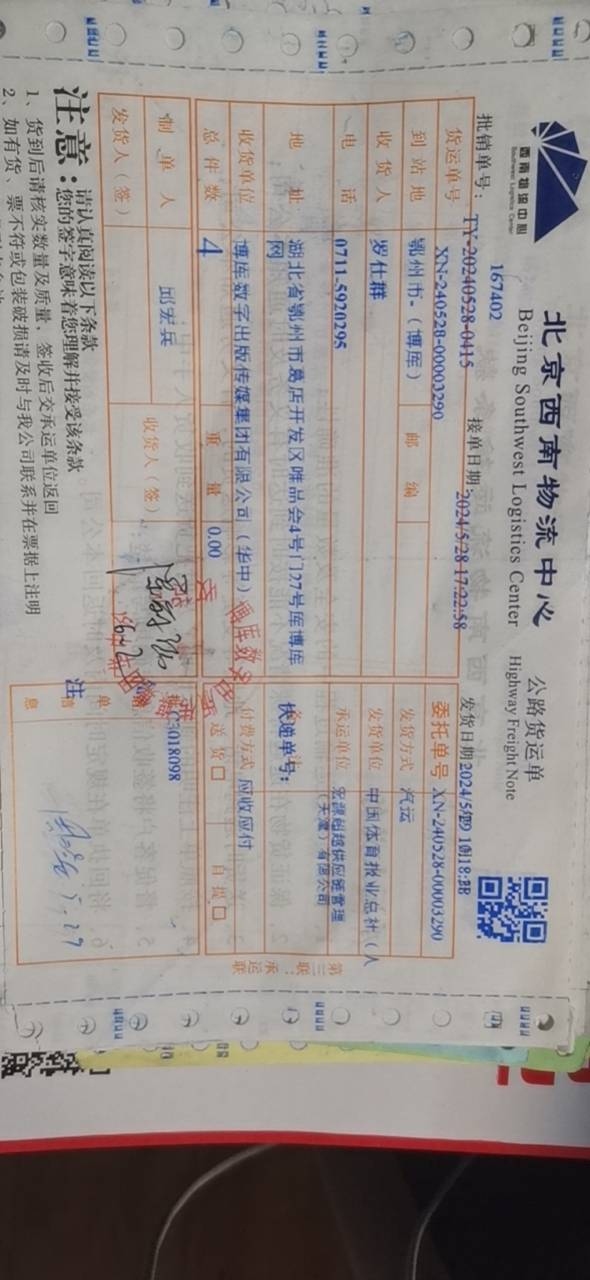 西南物流中心
Southwest Logistics Center
北京西南物流中心
Beijing Southwest Logistics Center
公路货运单
Highway Freight Note
167402
批销单号：TY-20240528-0415
接单日期：2024/5/28 17:22:58
发货日期
货运单号 XN-240528-00003290
委托单号 XN-240528-00003290
到站地 鄂州市-（博库） 邮编
发货方式 汽运
收货人 罗仕群
发货单位 中国体育报业总社（人
电话 0711-5920295
承运单位 宏源超越供应链管理
（天津）有限公司
地址 湖北省鄂州市葛店开发区唯品会4号门27号库博库
网
快递单号：
收货单位 博库数字出版传媒集团有限公司（华中）
付费方式 应收应付
总件数 4 重量 0.00
送货 自提
制单人 邱宏兵
收货人（签）
C5018098
发货人（签）
注
单
信
息
第三联：承运联
注意：
请认真阅读以下条款
您的签字意味着您理解并接受该条款
1、货到后请核实数量及质量，签收后交承运单位返回
2、如有货、票不符或包装破损请及时与我公司联系并在票据上注明